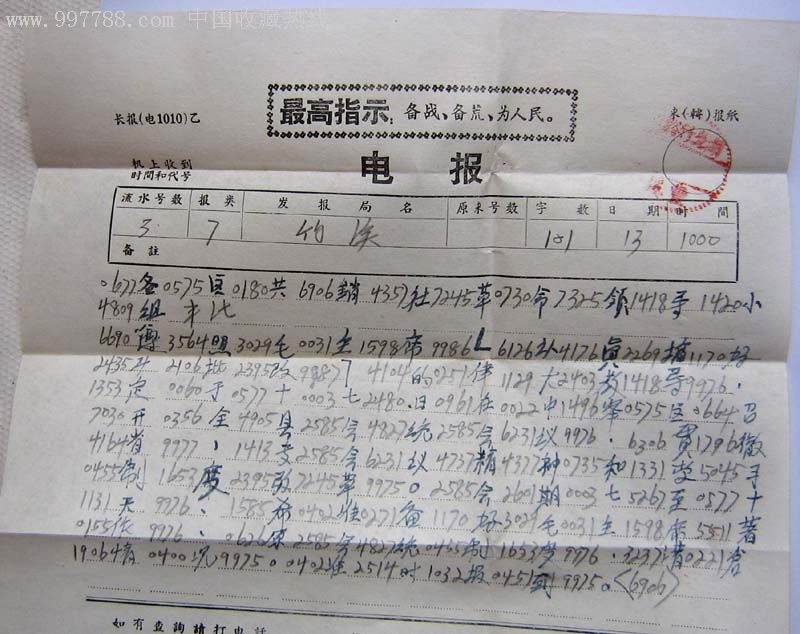 www.997788.com 中国收藏热线
长报(电1010)乙
最高指示: 备战、备荒、为人民。
来(转)报纸
机上收到
时间和代号
电 报
流水号数 报类 发报局名 原来号数 字数 日期 时间
3 7 竹溪 101 13 1000
备註
0677各 0575区 0180共 6906銷 4357社 7245革 0730命 7325领 1418导 1420小
4809组
3564照 3029毛 0031主 1598席 9986 6126 4176真 2269 1170好
2435斗 2106批 2395改 9987 4104的 0251伟 1129大 2403 1418导 9976.
1353定 0060于 0577十 0003七 2480日 0961在 0022中 1496 0575区 0664召
7030开 0356全 4905县 2585会 4827统 2585会 6231议 9976. 6306贯 1796徹
4164省 9977、 1413 2585会 6231议 4737精 4377神 0735和 1331 5045手
0455制 1653度 2395改 7245革 9975。 2585会 2601期 0003七 5267至 0577十
1131天 9976. 1585希 0402准 0271备 1170好 3029毛 0031主 1598席 5511著
9976. 2585会 4827统 0455制 1653度 9976. 3237
0400况 9975。 0402准 2514时 1032报 0451到 9975。(6906)
如有查詢請打电話